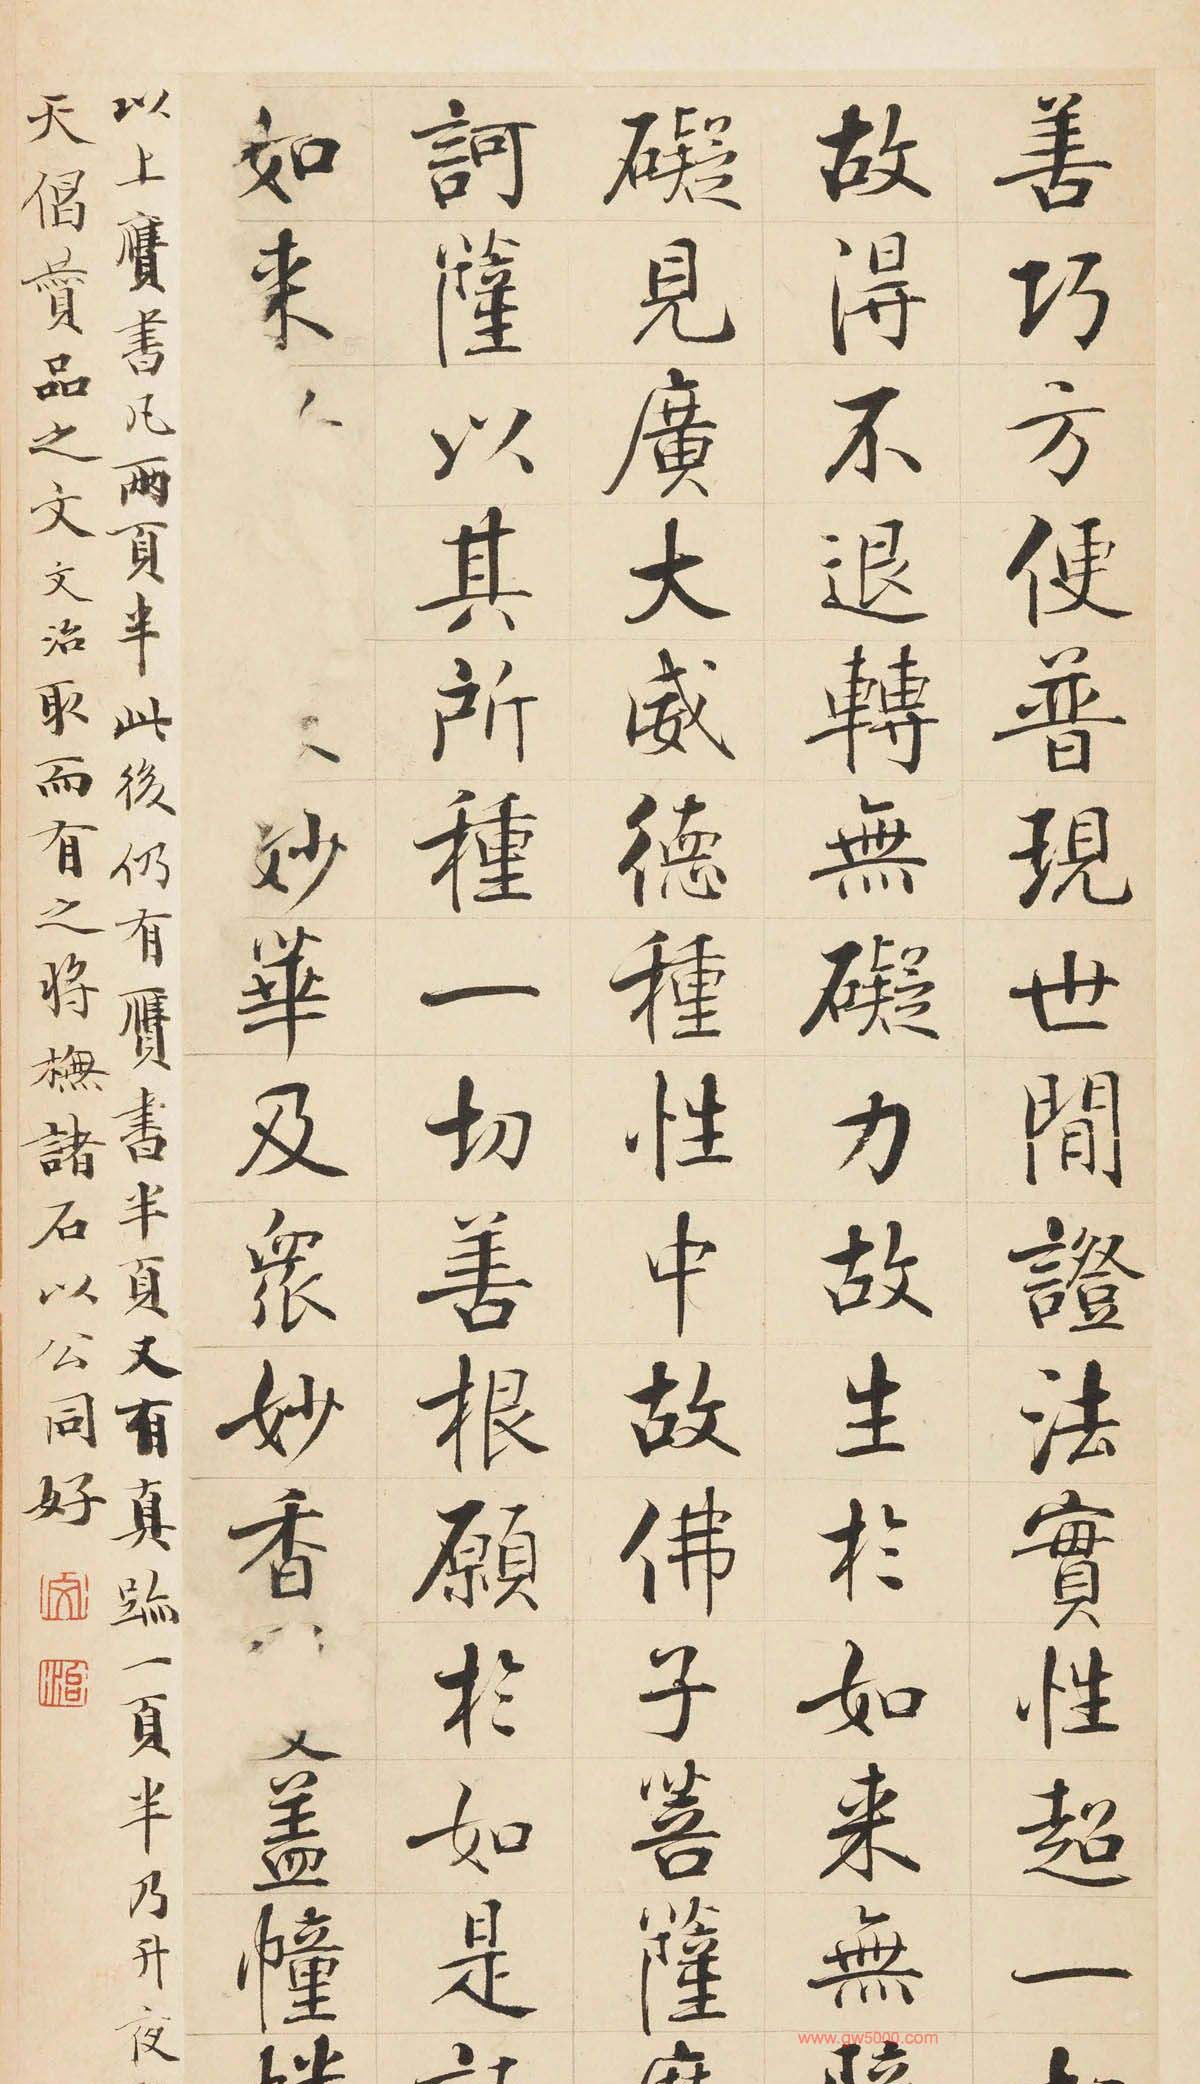 善巧方便普現世間證法實性超一
故得不退轉無礙力故生於如来無
礙見廣大威德種性中故佛子菩薩
訶薩以其所種一切善根願於如是
如来
妙華及眾妙香
蓋幢
以上贗書凡兩頁半此後仍有贗書半頁又有真跡一頁半乃升夜
天偈贊品之文文治取而有之將橅諸石以公同好
文
治
www.gw5000.com